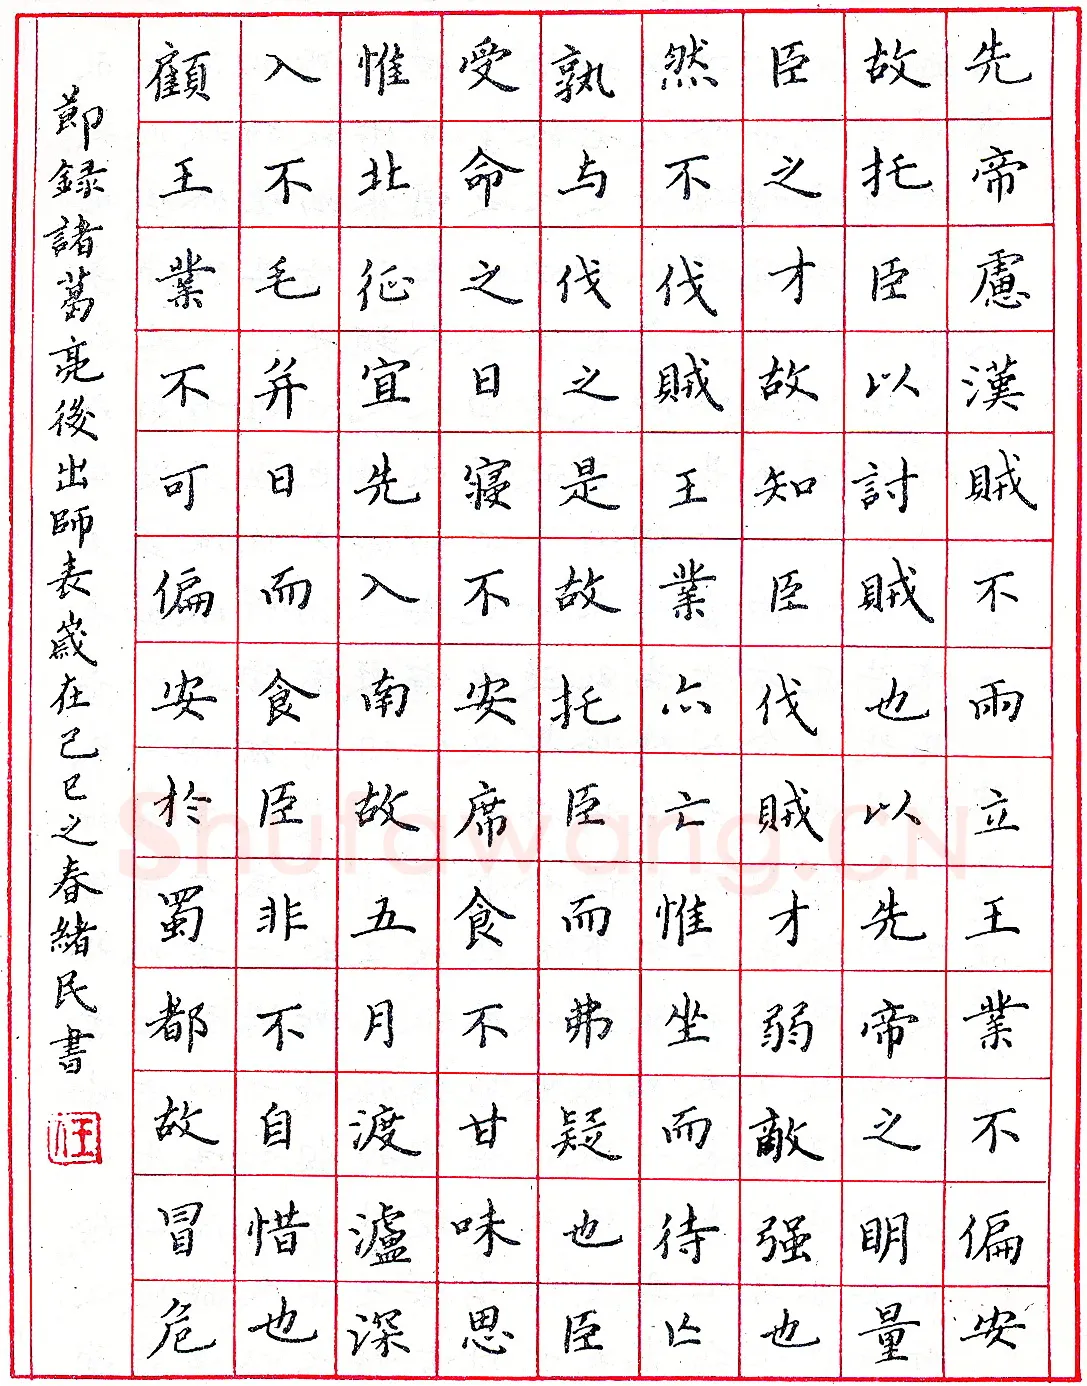 先帝慮漢賊不兩立王業不偏安
故托臣以討賊也以先帝之明量
臣之才故知臣伐賊才弱敵强也
然不伐賊王業亦亡惟坐而待亡
孰与伐之是故托臣而弗疑也臣
受命之日寢不安席食不甘味思
惟北征宜先入南故五月渡瀘深
入不毛并日而食臣非不自惜也
顧王業不可偏安於蜀都故冒危
節録諸葛亮後出師表歲在己巳之春緒民書
汪
Shufawang.CN